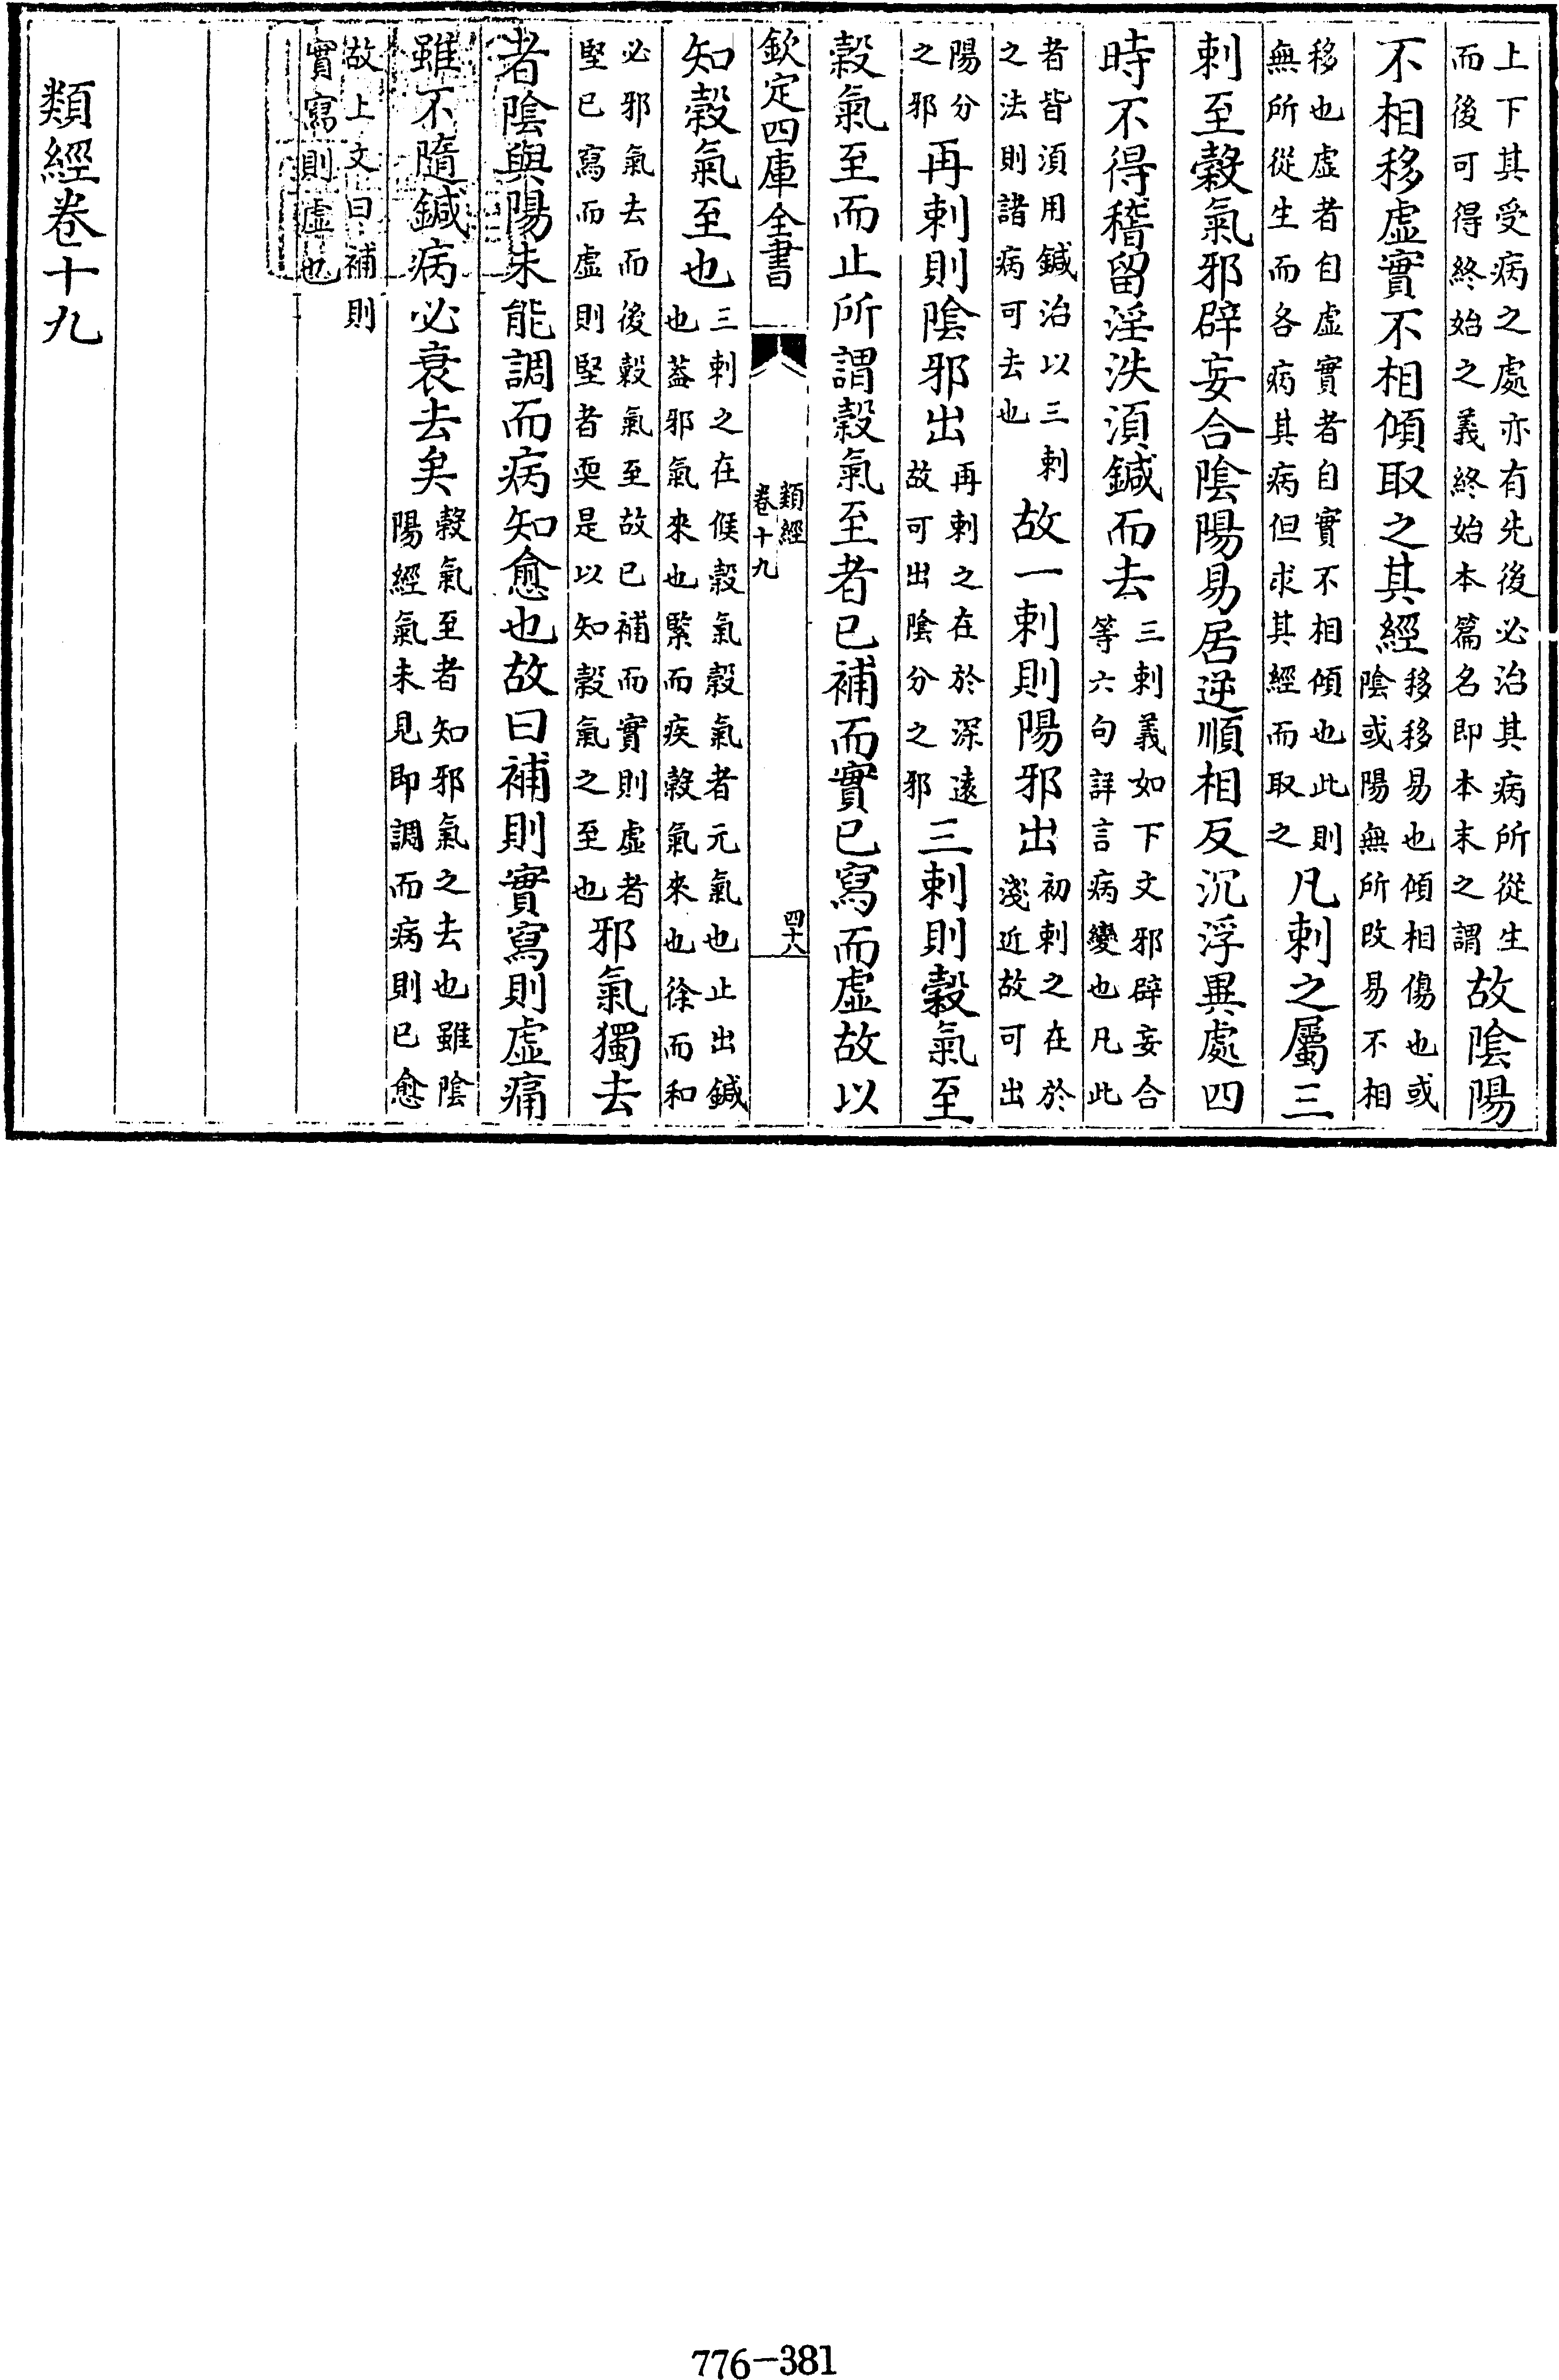 上下其受病之處亦有先後必治其病所從生
而後可得終始之義終始本篇名即本末之謂
故陰陽
不相移虛實不相傾取之其經
移移易也傾相傷也或
陰或陽無所改易不相
移也虛者自虛實者自實不相傾也此則
無所從生而各病其病但求其經而取之
凡刺之屬三
刺至穀氣邪辟妄合陰陽易居逆順相反沉浮異處四
時不得稽留淫泆須鍼而去
三刺義如下文邪辟妄合
等六句詳言病變也凡此
者皆須用鍼治以三刺
之法則諸病可去也
故一刺則陽邪出
初刺之在於
淺近故可出
陽分
之邪
再刺則陰邪出
再刺之在於深遠
故可出陰分之邪
三刺則穀氣至
穀氣至而止所謂穀氣至者已補而實已寫而虛故以
欽定四庫全書
類經
卷十九
四十八
知穀氣至也
三刺之在候穀氣穀氣者元氣也止出鍼
也蓋邪氣來也緊而疾穀氣來也徐而和
必邪氣去而後穀氣至故已補而實則虛者
堅已寫而虛則堅者耎是以知穀氣之至也
邪氣獨去
者陰與陽未能調而病知愈也故曰補則實寫則虛痛
雖不隨鍼病必衰去矣
穀氣至者知邪氣之去也雖陰
陽經氣未見即調而病則已愈
故上文曰補則
實寫則虛也
類經卷十九
776-381